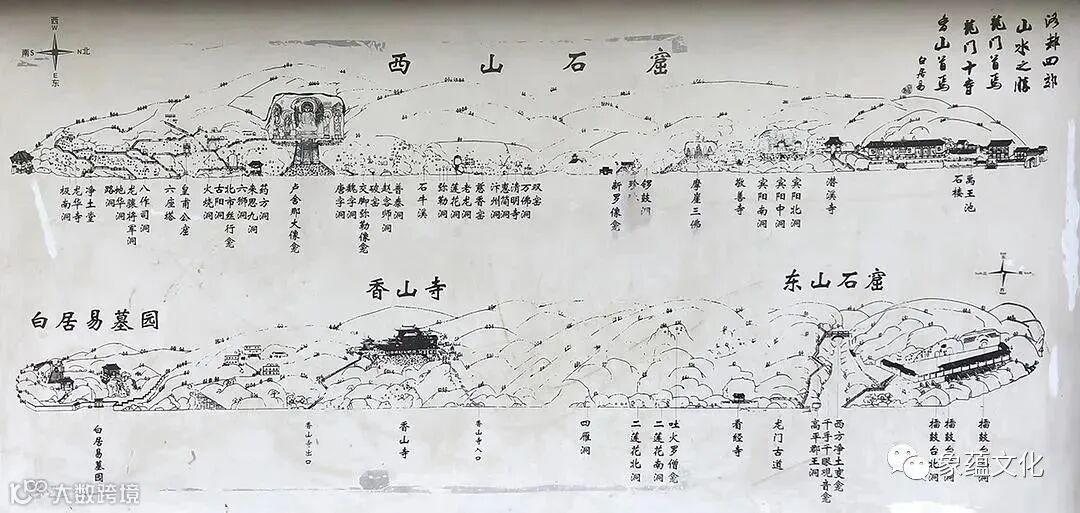 西
W
南S
N北
E
东
西山石窟
洛都四郊
山水之胜
龙门首焉
龙门十寺
香山首焉
白居易
极南洞
龙华寺
净土堂
路洞
地华洞
龙骧将军洞
八作司洞
六座塔
皇甫公座
火烧洞
古阳洞
北市丝行龛
六狮洞
来思九洞
药方洞
卢舍那大像龛
唐字洞
魏字洞
交脚弥勒像龛
破窑
赵客师洞
普泰洞
石牛溪
弥勒洞
莲花洞
老龙洞
慈香窑
汴州洞
惠简洞
清明寺
万佛洞
双窑
新罗像龛
珍珠
锣鼓洞
摩崖三佛
敬善寺
宾阳南洞
宾阳中洞
宾阳北洞
潜溪寺
石楼
禹王池
白居易墓园
香山寺
东山石窟
白居易墓园
香山寺出口
香山寺
香山寺入口
四雁洞
二莲花北洞
二莲花南洞
吐火罗僧龛
看经寺
龙门古道
高平郡王洞
千手千眼观音龛
西方净土变龛
擂鼓台北洞
擂鼓台
擂鼓台
大数跨境
象蕴文化